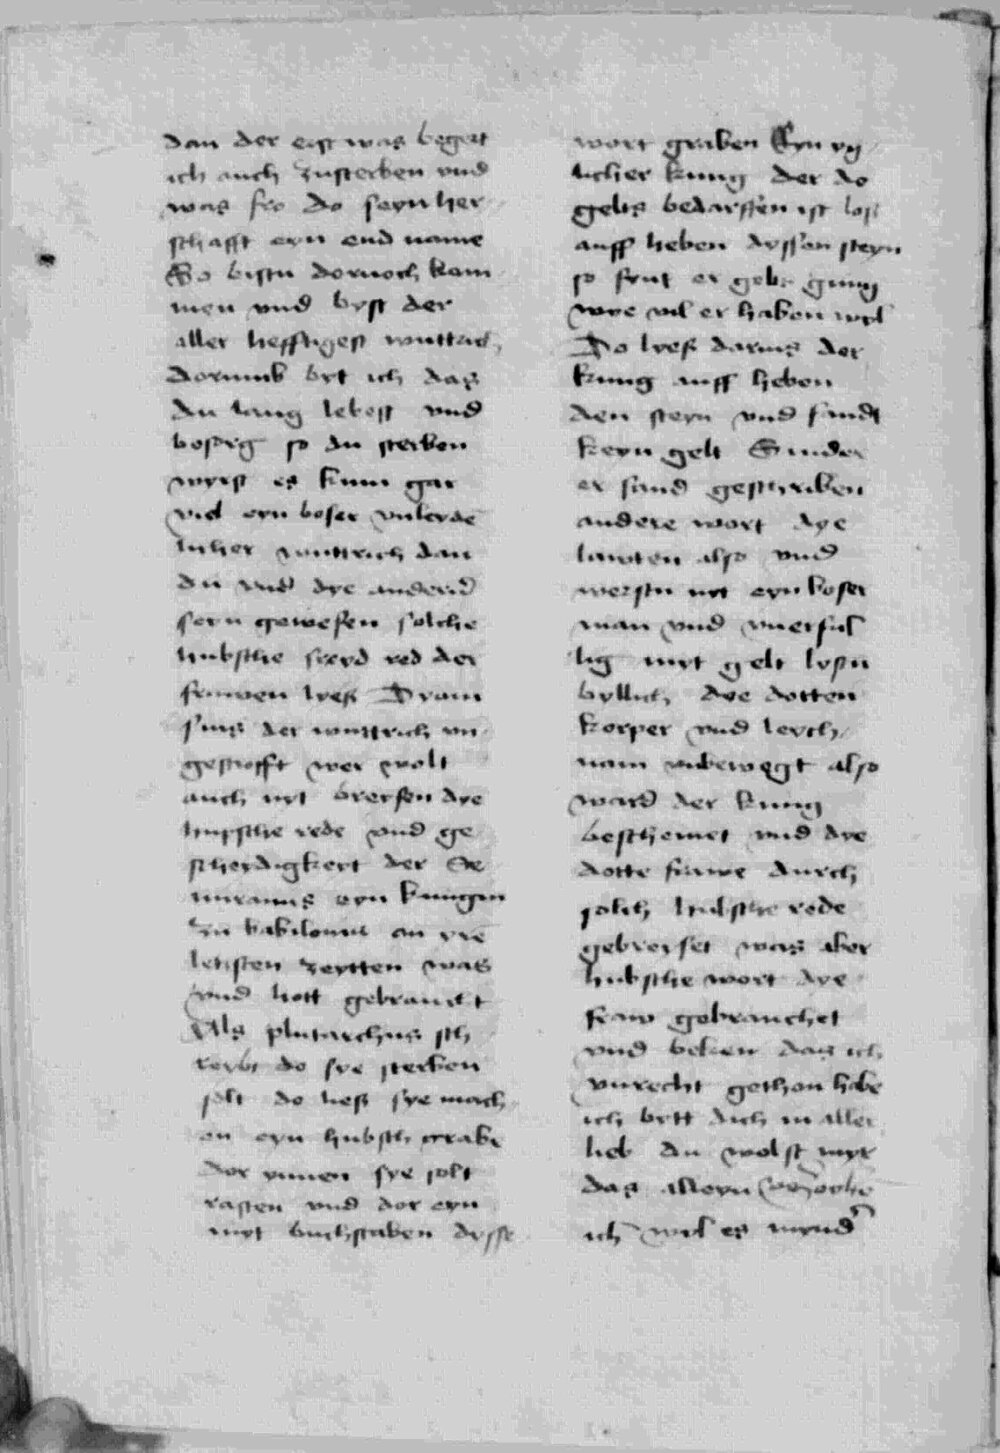 dan der erst was begert
ich auch zusterben vnd
was fro do seyn her
schafft eyn end name
So bistu dornoch kom
men vnd byst der
aller hefftigest wuttrich
dorumb byt ich das
du lang lebest vnd
besorg so du sterben
wyrst es kum gar
viel eyn boser
licher wuttrich dan
du vnd dye anderen
seyn gewesen solche
hubsche red der
frawen lyeß Dyoni
sius der wuttrich vn
gestrofft wer wolt
auch nyt breysen dye
hupsche rede vnd ge
scheydigkeyt der Se
miramis eyn kunigin
zu babilonia an yre
letzsten zeytten was
vnd hott gebraucht
Als plutarchus sch
reybt do sye sterben
solt do ließ sye mach
en eyn hubsch grabe
dor ynnen sye solt
rasten vnd dor eyn
myt buchstaben dysse
wort graben Eyn yg
licher kunig der do
gelts bedarffen ist loß
auff heben dyssen steyn
so fynt er gelt gnug
wye vil er haben wil
Do lyeß darius der
kunig auff heben
den steyn vnd fandt
keyn gelt Sunder
er fand geschriben
andere wort dye
lawten also vnd
werstu nyt eyn boser
man vnd vnerful
lig myt gelt
byllich dye dotten
korper vnd leych
nam vnbewegt also
ward der kunig
beschemet vnd dye
dotte frawe durch
solch hubsche rede
gebreyset was aber
hubsche wort dye
fraw gebrauchet
vnd beken das ich
vnrecht gethon habe
ich bytt dich in aller
lieb du wolst myr
das alleyn
ich wil es mynder